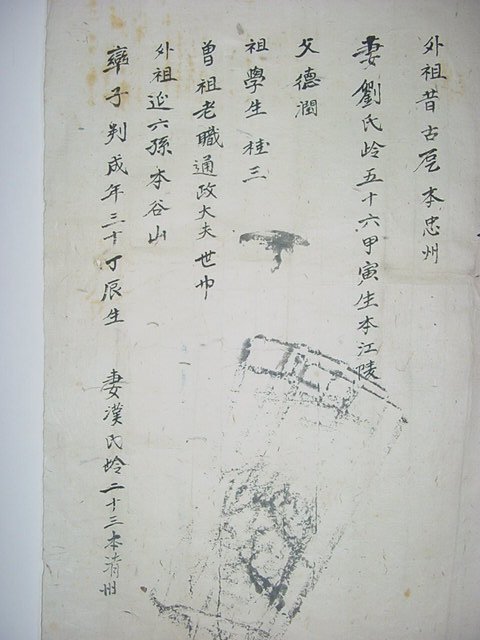 外祖昔古尼本忠州
妻劉氏齡五十六甲寅生本江陵
父德潤
祖學生桂三
曾祖老職通政大夫世中
外祖延六孫本谷山
率子判成年三十丁辰生 妻漢氏齡二十三本清州